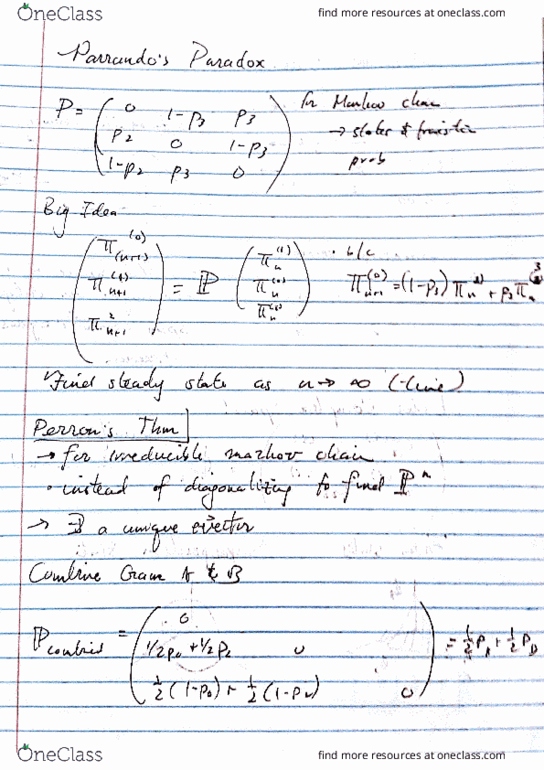 OneClass find more resources at oneclass.com
Parrando's Paradox
P = ( 0 1-p3 p3
p2 0 1-p3
1-p2 p3 0 )
for Markov chain
→ states &
prob
Big Idea
( π(0)(n+1)
π(1)n+1
π2n+1 ) = ℙ ( πn(1)
πn(0)
πn )
· b/c
π(0)n+1 = (1-p3) πn + p3 πn
Find steady state as n→∞ (time)
Perron's Thm
→ for irreducible markov chain
· instead of diagonalizing to find ℙn
→ ∃ a unique evector
Combine Gram A & B
ℙ = ( 0
1/2 p0 + 1/2 p2 0
1/2 (1-p0) + 1/2 (1-p2) 0 ) = 1/2 PA + 1/2 PB
OneClass find more resources at oneclass.com